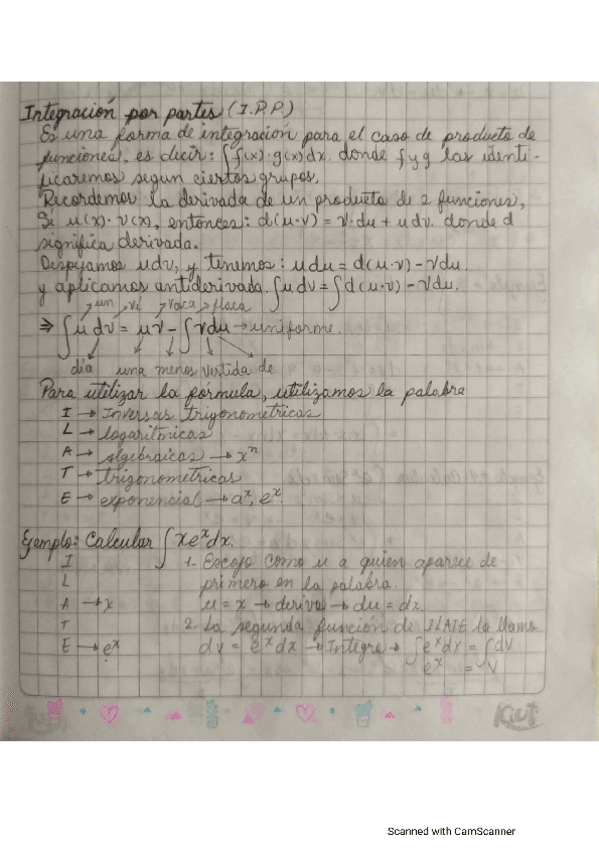 Integración por partes (I.P.P.)
Es una forma de integración para el caso de producto de
funciones, es decir: ∫f(x)·g(x)dx. donde f y g las identi-
ficaremos segun ciertos grupos.
Recordemos la derivada de un producto de 2 funciones,
Si u(x)·v(x), entonces: d(u·v) = v·du + udv. donde d
significa derivada.
Despejamos udv, y tenemos: udu = d(u·v) - vdu.
y aplicamos antiderivada. ∫udv = ∫d(u·v) - vdu.
un vi vaca flaca
⇒ ∫udv = uv - ∫vdu → uniforme.
día una menos vestida de
Para utilizar la fórmula, utilizamos la palabra
I → Inversas trigonometricas
L → logaritmicas
A → algebraicas → xⁿ
T → trigonometricas
E → exponencial → aˣ, eˣ.
Ejemplo: Calcular ∫xeˣdx.
I 1- Escojo como u a quien aparece de
L primero en la palabra.
A → x u = x → deriva → du = dx.
T 2- La segunda función de ILATE la llamo
E → eˣ dv = eˣdx → Integro → ∫eˣdx = ∫dv
eˣ = v
Kiut
Scanned with CamScanner